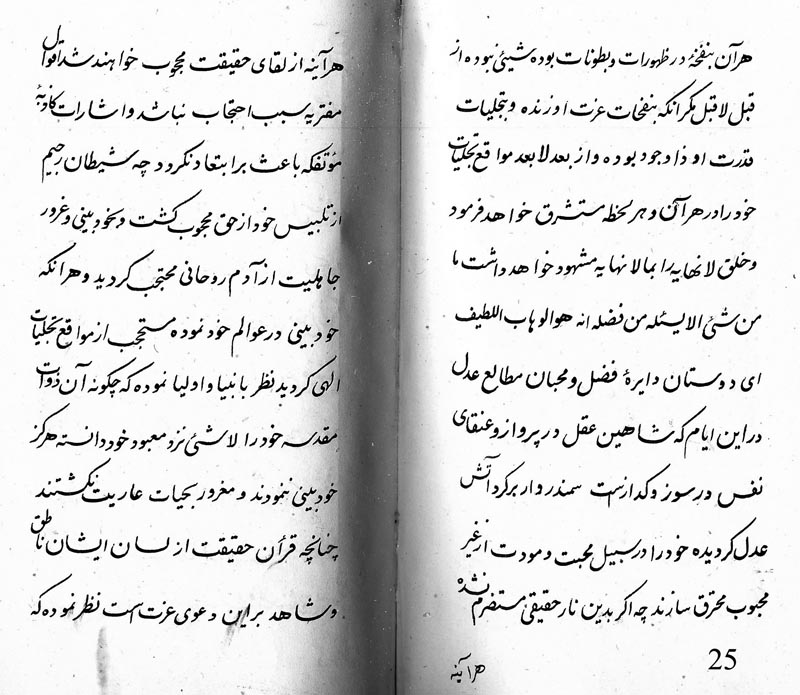 هرآن بنفخهٔ در ظهورات و بطونات بوده شیئی نبوده از
قبل لاقبل مگر انکه بنفحات عزت او زنده و بتجلیات
قدرت او ذا وجود بوده و از بعد لا بعد مواقع تجلیات
خود را در هر آن و هر لحظه مستشرق خواهد فرمود
و خلق لانهایه را بمالانهایه مشهود خواهد داشت ما
من شئ الا یسئله من فضله انه هو الوهاب اللطیف
ای دوستان دایرهٔ فضل و محبان مطالع عدل
در این ایام که شاهین عقل در پرواز و عنقای
نفس در سوز و گداز است سمندر وار بر گرد آتش
عدل گردیده خود را در سبیل محبت و مودت از غیر
محبوب محترق سازند چه اگر بدین نار حقیقی مستضرم نشده
هرآینه
25
هرآینه از لقای حقیقت محجوب خواهند شد اقوال
مفتریه سبب احتجاب نباشد و اشارات کاذبهٔ
مؤتفکه باعث بر ابتعاد نگردد چه شیطان رجیم
از تلبیس خود از حق محجوب گشت و بخودبینی و غرور
جاهلیت از آدم روحانی محتجب گردید و هر انکه
خودبینی در عوالم خود نموده مستحجب از مواقع تجلیات
الهی گردید نظر بانبیا و اولیا نموده که چگونه آن ذوات
مقدسه خود را لاشئ نزد معبود خود دانسته هرگز
خودبینی ننمودند و مغرور بحیات عاریت نگشتند
چنانچه قرآن حقیقت از لسان ایشان ناطق
و شاهد بر این دعوی عزت است نظر نموده که